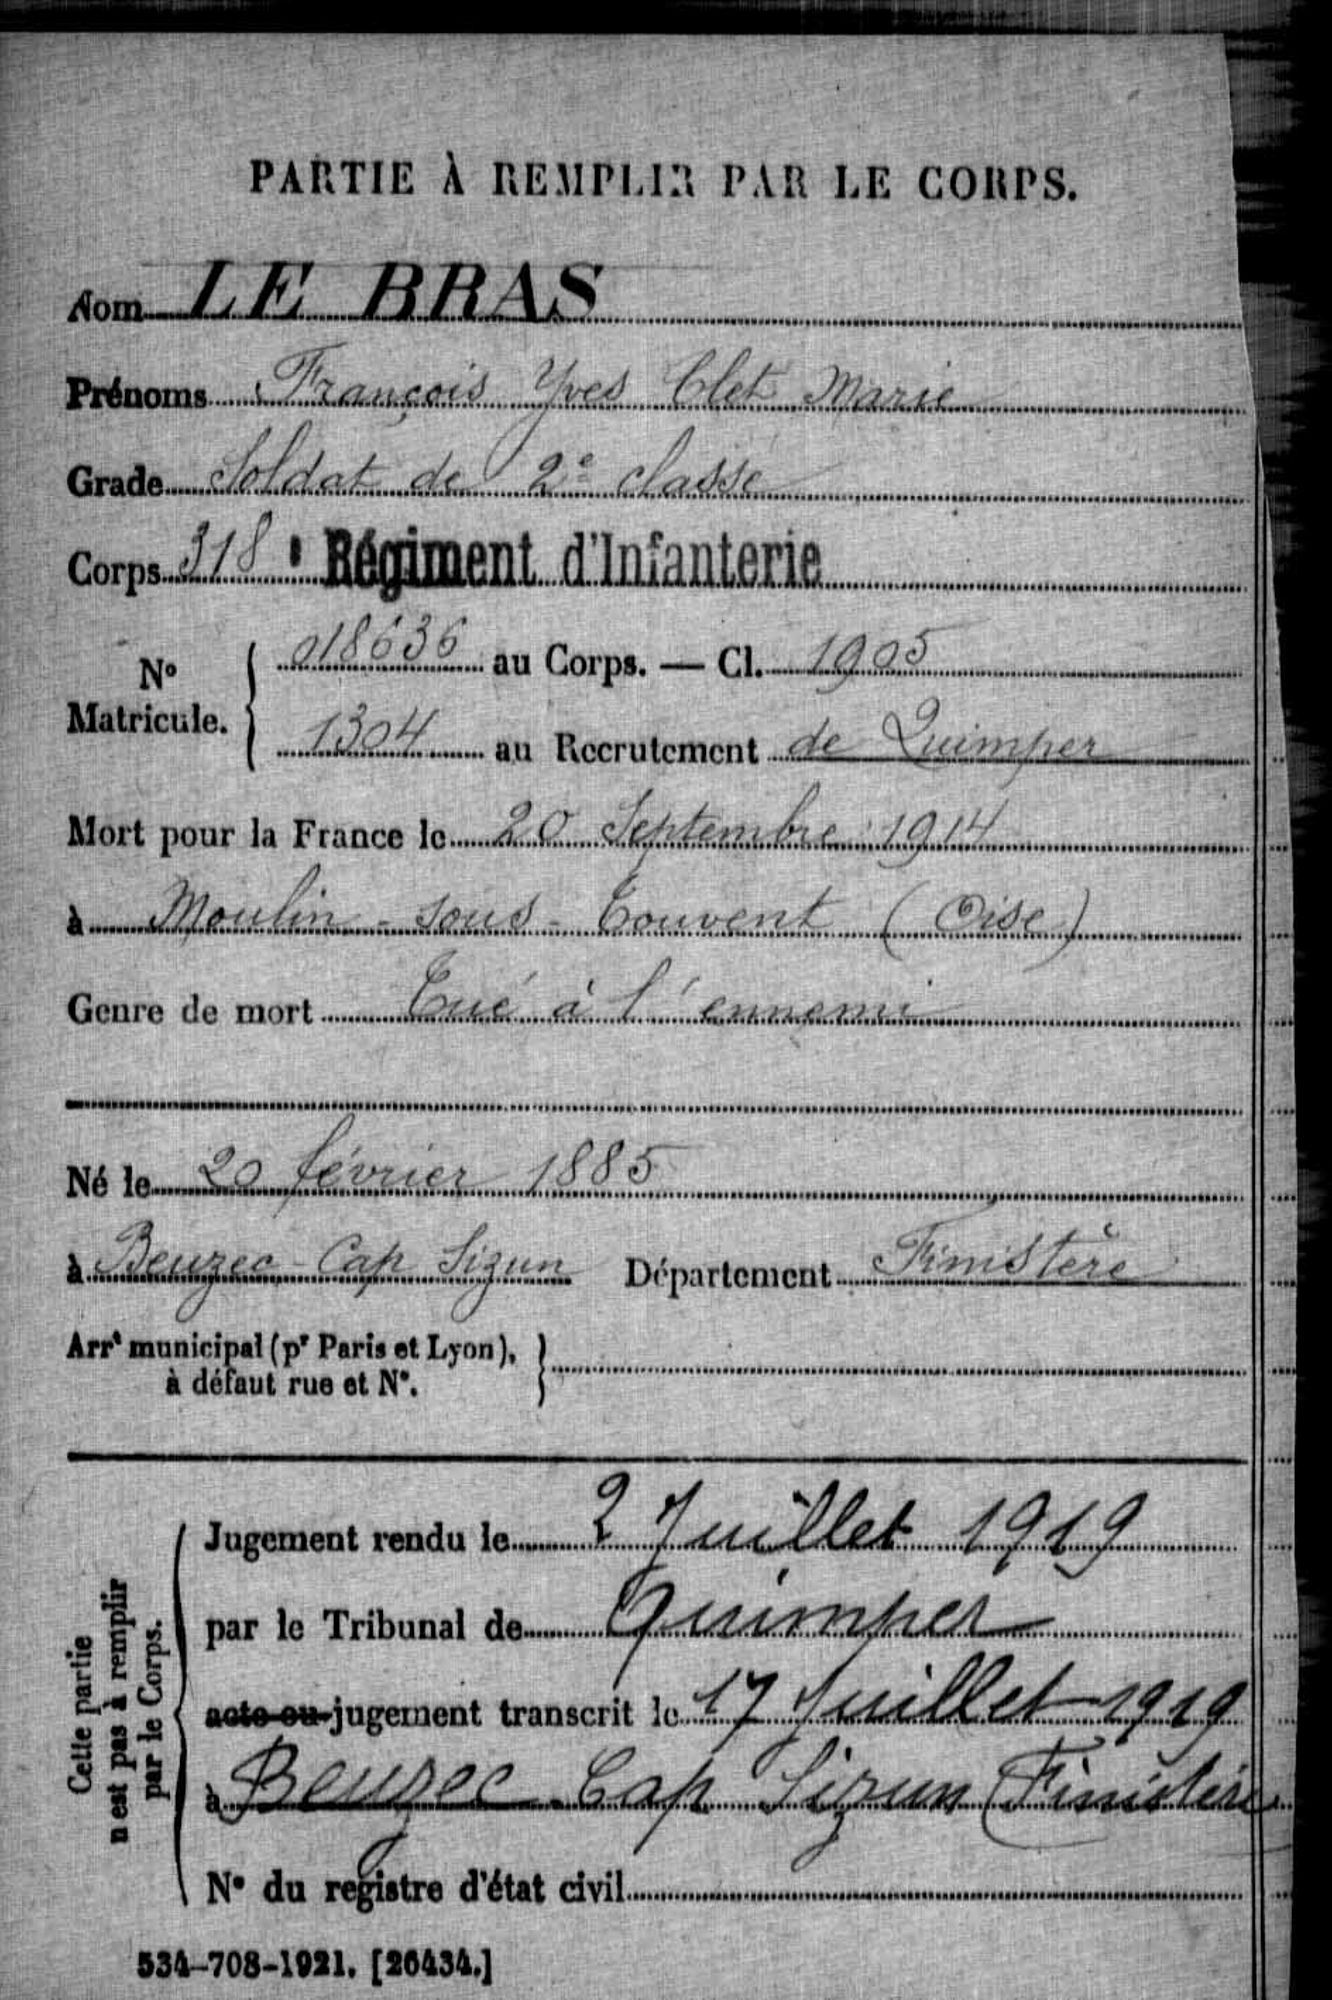 PARTIE À REMPLIR PAR LE CORPS.
Nom LE BRAS
Prénoms François Yves Clet Marie
Grade Soldat de 2e classe
Corps 318e Régiment d'Infanterie
No Matricule. { 018636 au Corps. — Cl. 1905
1304 au Recrutement de Quimper
Mort pour la France le 20 Septembre 1914
à Moulin-sous-Touvent (Oise)
Genre de mort Tué à l'ennemi
Né le 20 février 1885
à Beuzec-Cap Sizun Département Finistère
Arrt municipal (pr Paris et Lyon), }
à défaut rue et No.
Cette partie
n'est pas à remplir
par le Corps.
Jugement rendu le 2 Juillet 1919
par le Tribunal de Quimper
acte ou jugement transcrit le 17 Juillet 1919
à Beuzec-Cap Sizun (Finistère
No du registre d'état civil
534-708-1921. [26434.]